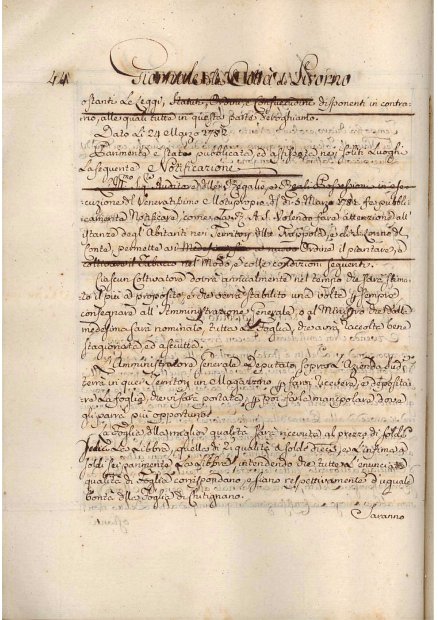 44
Giornale di Città di Livorno
ostanti le Leggi, Statuti, Ordini, e Consuetudini disponenti in contra-
rio, alle quali tutte in questa parte deroghiamo.
Dato li 24 Marzo 1752
Parimente è stata pubblicata, ed affissa nei soliti Luoghi
la seguente Notificazione
Auditore delle Regalie, e Reali Possessioni in ese-
cuzione del Venerat.mo Motuproprio di di 5 Marzo fa pubbli-
camente Notificare, come la R. A. S. volendo fare attenzione all'
istanze degli Abitanti nei Territorj della e di Cerreto del
Conte, permette ai Ordine il piantare, e
coltivare il Tabacco nel Modo, e colle condizioni seguenti.
Ciascun Coltivatore dovrà annualmente nel tempo che sarà stima-
to il più a proposito, e che verrà stabilito una volta p sempre
consegnare all' Amministrazione Generale, o al Ministro che dalla
medesima sarà nominato, tutta la Foglia, che avrà raccolta bene
stagionata ed asciutta.
L'Amministratore Generale Deputato sopra l'Azienda
terrà in quei Territorj un Magazzino p farvi ricevere, e deposita-
re la Foglia, che vi sarà portata, e p poi farla manipolare dove
gli parrà più opportuno.
La Foglia della meglio qualità sarà ricevuta al prezzo di soldi
sedici la Libbra, quella di 2.ª qualità a soldi dieci, e la infima a
soldi sei parimente la Libbra, intendendo che tutte le enunciate
qualità di Foglia corrispondano, e siano respettivamente d'uguale
bontà alla Foglia di Chitignano.
Saranno